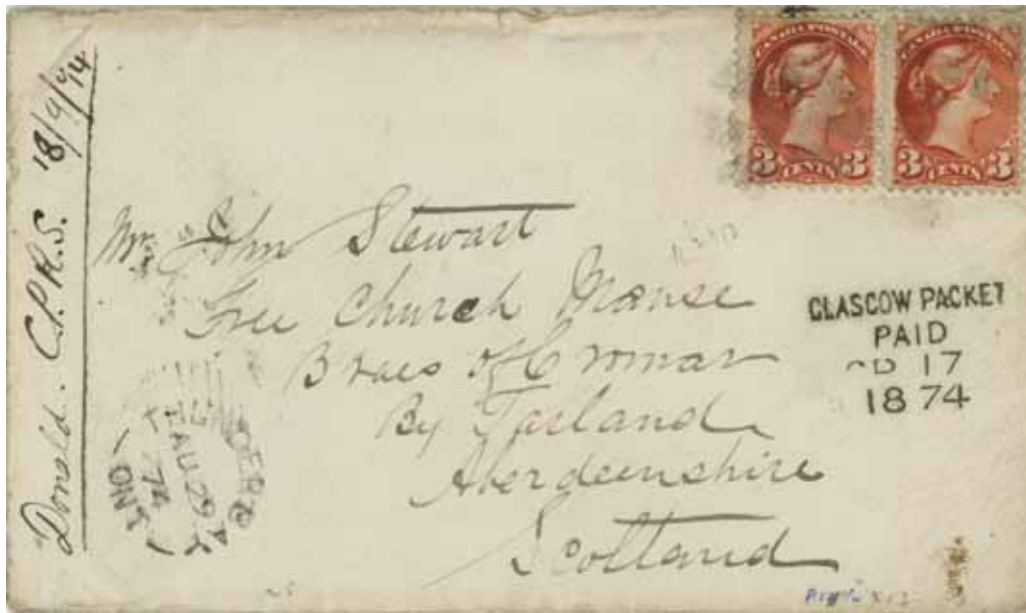 CANADA POSTAGE
3 CENTS 3
CANADA POSTAGE
3 CENTS 3
Donald. C.P.R.S. 18/9/74
Mr. John Stewart
Free Church Manse
Braes of Cromar
By Tarland
Aberdeenshire
Scotland
GLASCOW PACKET
PAID
17
1874
THUNDER BAY
AU 29
74
ONT